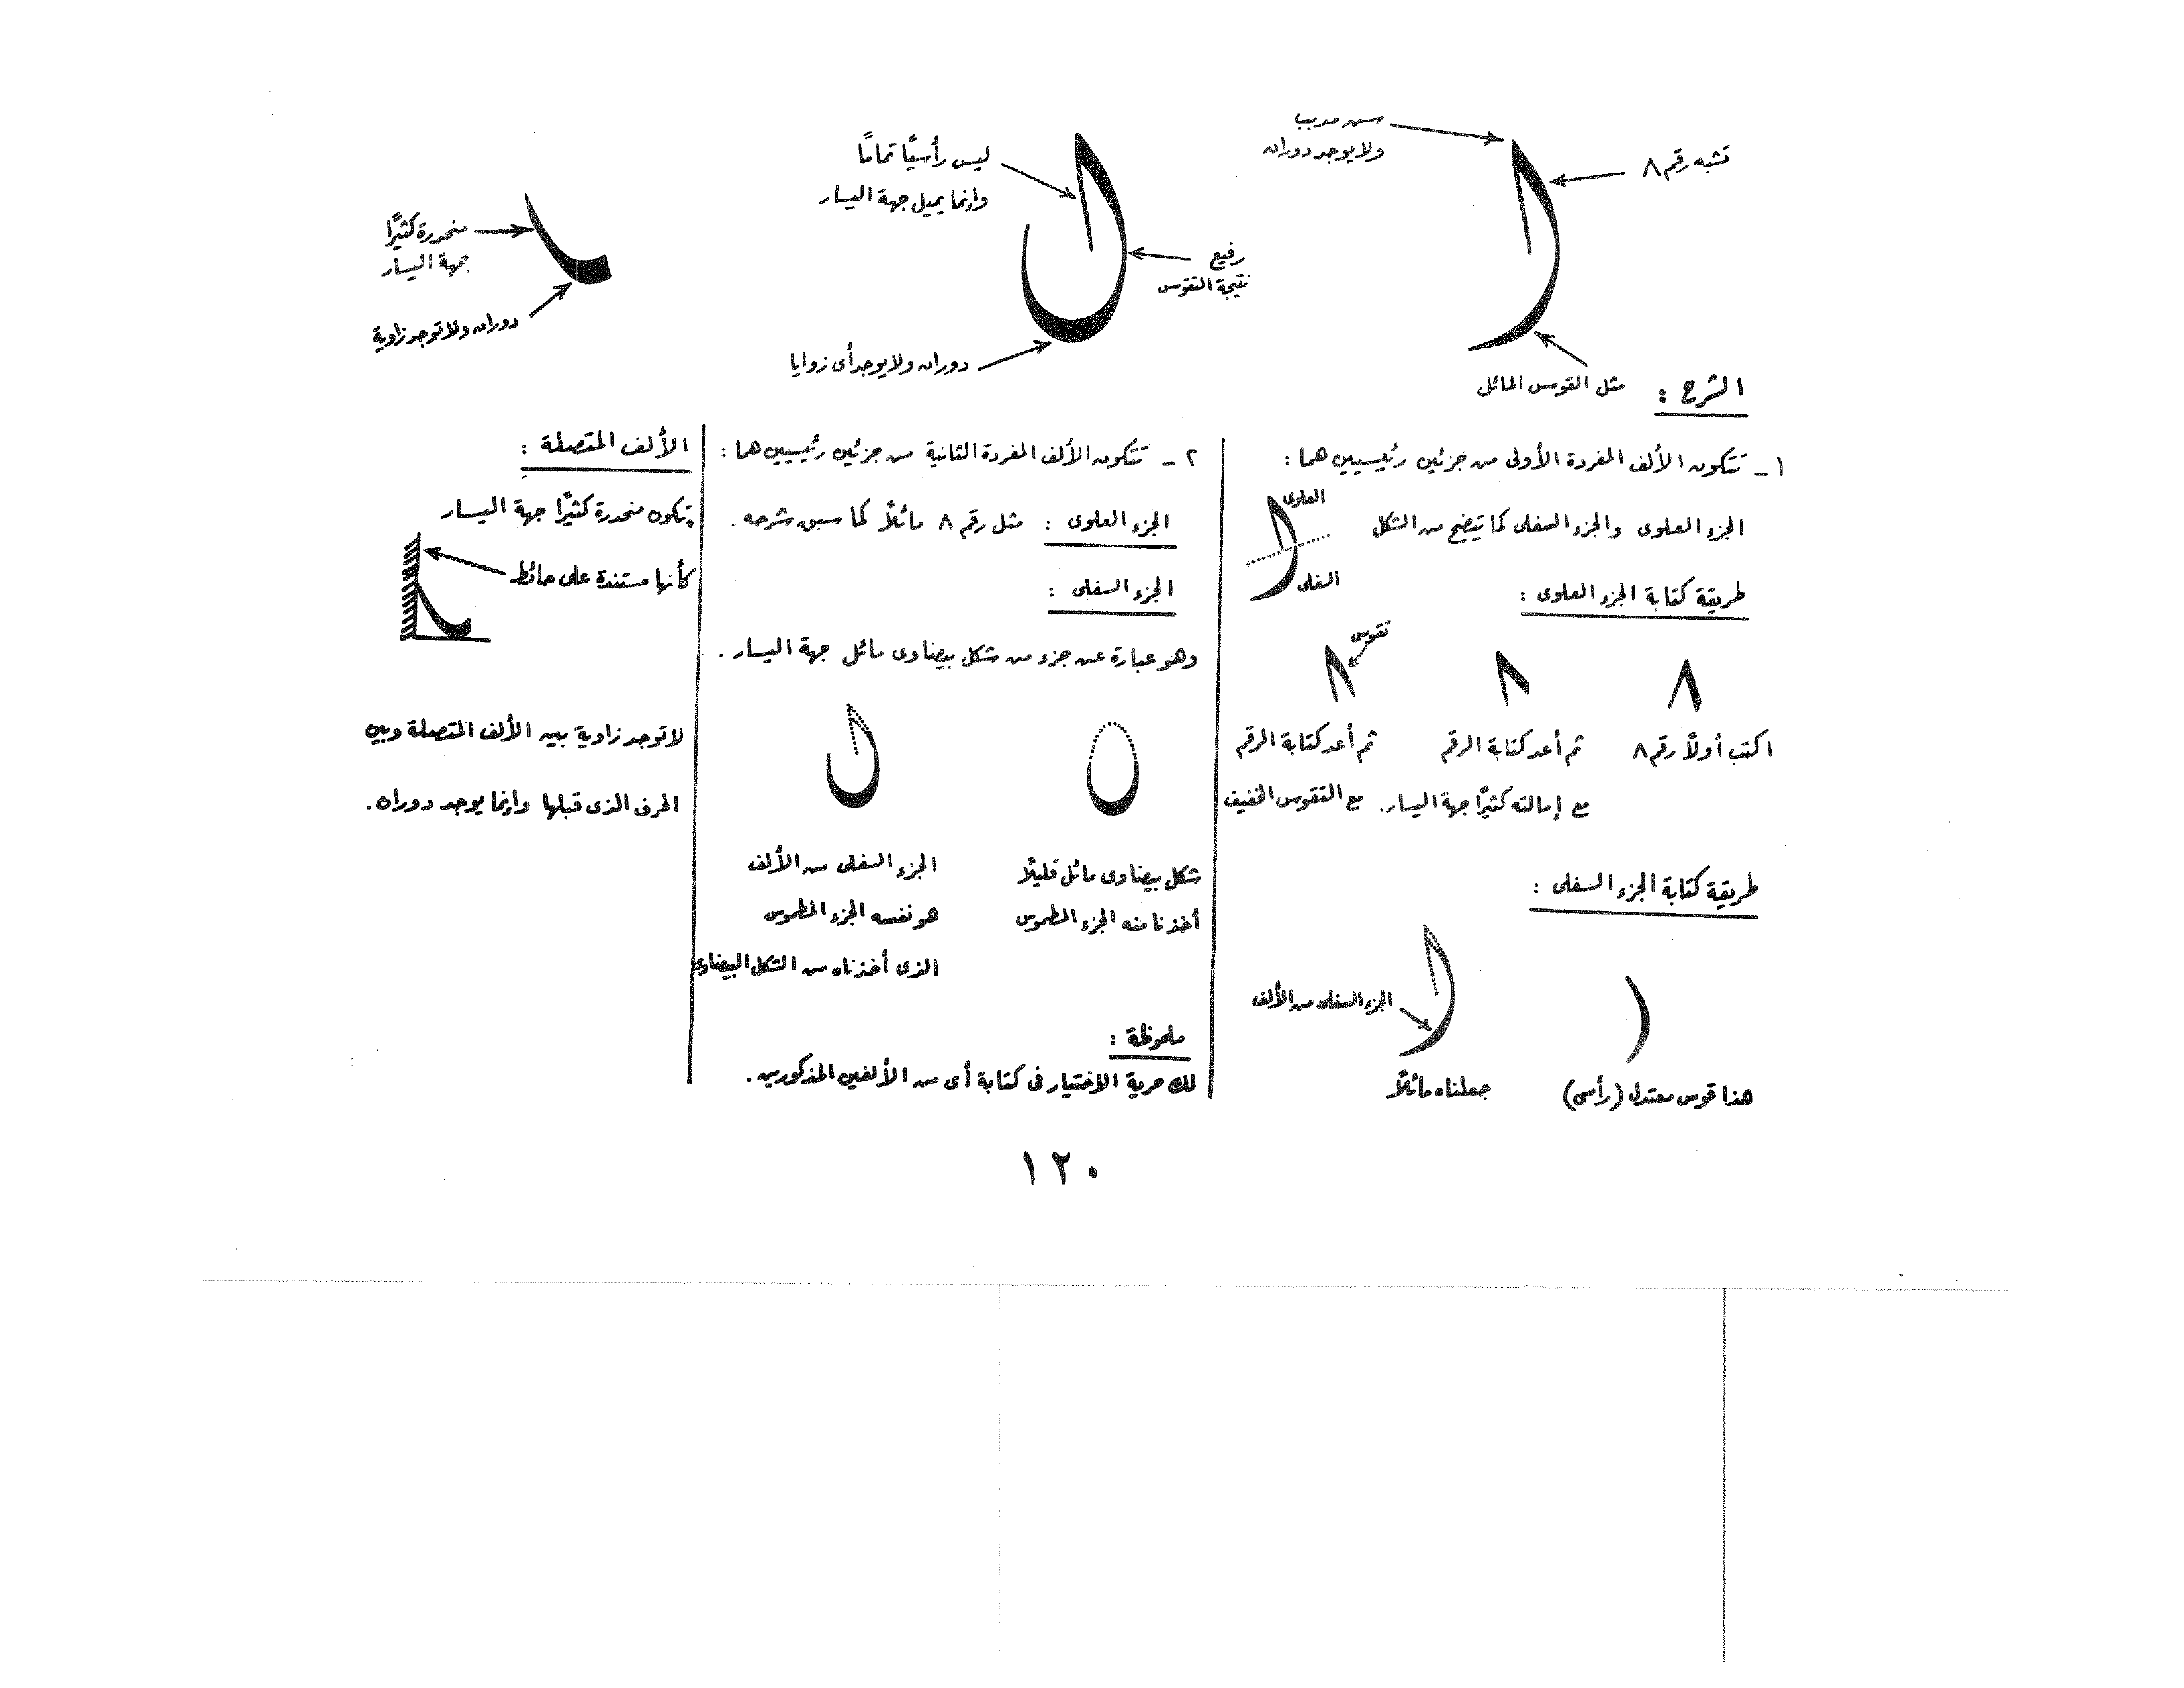 تشبه رقم ٨
سن مدببا
ولا يوجد دوران
مثل القوس المائل
ليس رأسيًا تمامًا
وإنما يميل جهة اليسار
رفيع
نتيجة التقوس
دوران ولا يوجد أى زوايا
منحدرة كثيرًا
جهة اليسار
دوران ولا توجد زاوية
الشرح :
١ - تتكون الألف المفردة الأولى من جزئين رئيسيين هما :
الجزء العلوى والجزء السفلى كما يتضح من الشكل
العلوى
السفلى
طريقة كتابة الجزء العلوى :
تقوس
٨ ٨ ٨
اكتب أولاً رقم ٨
ثم أعد كتابة الرقم
مع إمالته كثيرًا جهة اليسار.
ثم أعد كتابة الرقم
مع التقوس الخفيف
طريقة كتابة الجزء السفلى :
الجزء السفلى من الألف
هذا قوس معتدل (رأسى)
جعلناه مائلاً
٢ - تتكون الألف المفردة الثانية من جزئين رئيسيين هما :
الجزء العلوى : مثل رقم ٨ مائلاً كما سبق شرحه .
الجزء السفلى :
وهو عبارة عن جزء من شكل بيضاوى مائل جهة اليسار .
شكل بيضاوى مائل قليلاً
أخذنا منه الجزء المطموس
الجزء السفلى من الألف
هو نفسه الجزء المطموس
الذى أخذناه من الشكل البيضاوى
ملحوظة :
لك حرية الاختيار فى كتابة أى من الألفين المذكورين .
الألف المتصلة :
تكون منحدرة كثيرًا جهة اليسار
كأنها مستندة على حائط
لا توجد زاوية بين الألف المتصلة وبين
الحرف الذى قبلها وإنما يوجد دوران .
١٢٠